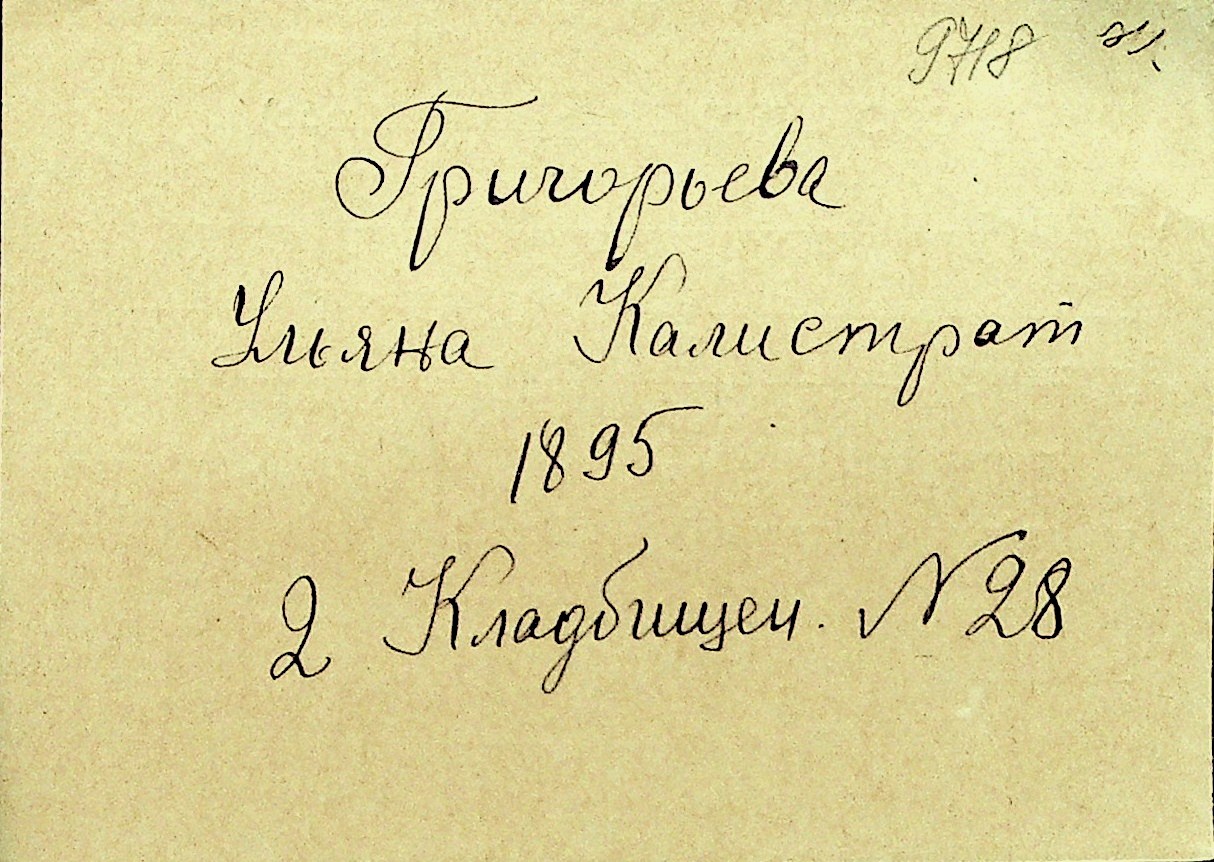 9718 ж.
Григорьева
Ульяна Калистрат
1895
2 Кладбищен. N 28